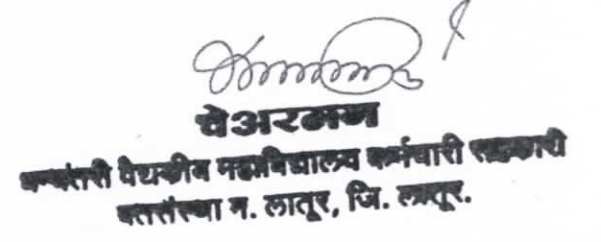 चेअरमन
धन्वंतरी वैद्यकीय महाविद्यालय कर्मचारी सहकारी
पतसंस्था म. लातूर, जि. लातूर.